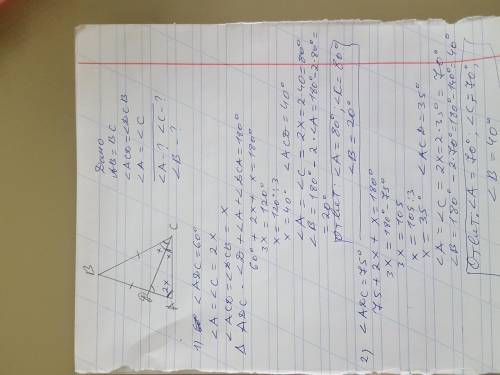 Дано
AB = BC
∠ACD = ∠DCB
∠A = ∠C
∠A - ? ∠C - ?
∠B = ?
B
D
A
C
2x
x
x
1) ∠ADC = 60°
∠A = ∠C = 2x
∠ACD = ∠DCB = x
Δ ADC - ∠D + ∠A + ∠DCA = 180°
60° + 2x + x = 180°
3x = 120°
x = 120° : 3
x = 40° ∠ACD = 40°
∠A = ∠C = 2x = 2·40 = 80°
∠B = 180° - 2·∠A = 180° - 2·80° =
= 20°
Ответ ∠A = 80°, ∠C = 80°
∠B = 20°
2) ∠ADC = 75°
75 + 2x + x = 180°
3x = 180° - 75°
3x = 105
x = 105 : 3
x = 35° ∠ACD = 35°
∠A = ∠C = 2x = 2·35° = 70°
∠B = 180° - 2·70° = 180° - 140° = 40°
Ответ. ∠A = 70°; ∠C = 70°,
∠B = 40°